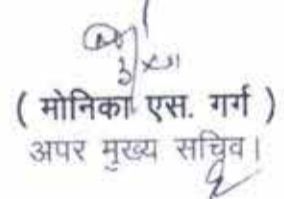 ( मोनिका एस. गर्ग )
अपर मुख्य सचिव।